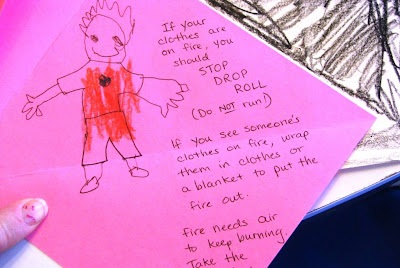 If your
clothes are
on fire, you
should
STOP
DROP
ROLL
(Do NOT run!)
If you see someone's
clothes on fire, wrap
them in clothes or
a blanket to put the
fire out.
fire needs air
to keep burning.
Take the